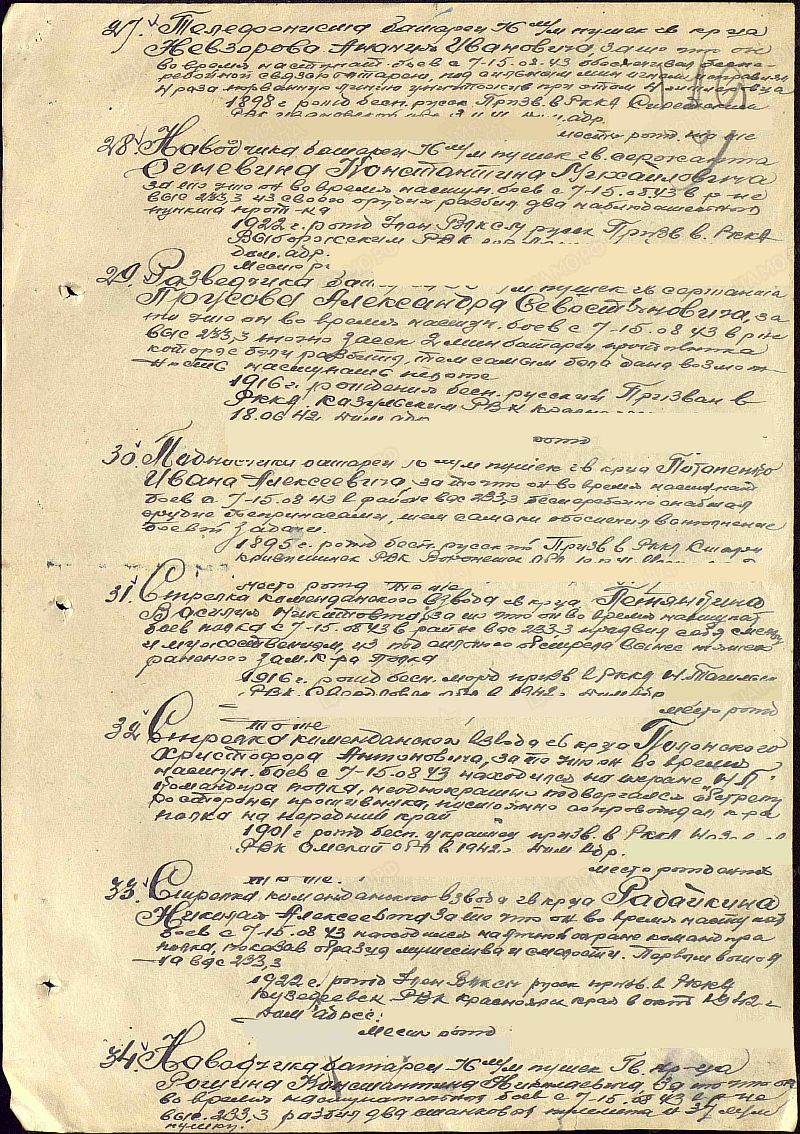 27. Телефониста батареи 76 м/м пушек гв. кр-ца
Невзорова Анания Ивановича, за то что он
во время наступат. боев с 7-15.08.43 обеспечивал беспе-
ребойной связью батарею, под сильным мин. огнем исправил
раз порванную линию, уничтожив при этом
1898 г. рожд. бесп. русск. Призв. в РККА
РВК
дом. адр.
место рожд. то же
28. Наводчика батареи 76 м/м пушек гв. сержанта
Сеневина Константина Михайловича
за то что он во время наступ. боев с 7-15.08.43 в р-не
выс. 233,3 из своего орудия разбил два наблюдательных
пункта прот-ка
1922 г. рожд. член ВЛКСМ русск. Призв. в РККА
Выборожским РВК
дом. адр.
Место р
29. Разведчика бат м/м пушек гв. сержанта
Прусова Александра Севостьяновича, за
то что он во время наступ. боев с 7-15.08.43 в р-не
выс. 233,3 точно засек 2 мин. батареи противника
которые были разбиты, тем самым была дана возмож-
ность наступать пехоте
1916 г. рождения бесп. русский Призван в
РККА Казульским РВК
18.06.42 дом. адр
рожд
30. батареи 76 м/м пушек гв. кр-ца Потапенко
Ивана Алексеевича, за то что он во время наступат.
боев с 7-15.08.43 в районе выс. 233,3 бесперебойно снабжал
орудие боеприпасами, тем самым обеспечил выполнение
боевой задачи.
1895 г. рожд. бесп. русский Призв. в РККА
РВК обл.
место рожд то же
31. Стрелка комендантского взвода гв. кр-ца
Василия Никитовича, за то что он во время наступат.
боев полка с 7-15.08.43 в районе выс. 233,3 проявил себя смелым
и мужественным, из под сильного обстрела вынес тяжело
раненого зам. к-ра полка
1916 г. рожд. бесп. морд. призв. в РККА Н. Тагильск
РВК Свердловск. обл. в 1942 г. дом. адр
место рожд
то же
32. Стрелка комендантского взвода гв. кр-ца Полонского
Христофора Антоновича, за то что он во время
наступ. боев с 7-15.08.43 находился на охране НП
командира полка, неоднократно подвергался обстрелу
со стороны противника, сопровождал к-ра
полка на передний край
1901 г. рожд. бесп. украинец призв. в РККА
РВК Омской обл. в 1942 г. дом. адр.
место рожд.
то же
33. Стрелка комендантского взвода гв. кр-ца Рабайкина
Николая Алексеевича за то что он во время наступат.
боев с 7-15.08.43 находился на личной охране командира
полка, показав образцы мужества и смелости. Первым вышел
на выс. 233,3
1922 г. рожд. член ВЛКСМ русск. призв. в РККА
Кузедеевск РВК Красноярск. края в окт. 1942 г.
дом. адрес:
место рожд
34. Наводчика батареи 76 м/м пушек Гв. кр-ца
Рощина Константина за то что он
во время наступательных боев с 7-15.08.43 в р-не
выс. 233,3 разбил два станковых пулемета и 37 м/м
пушку.